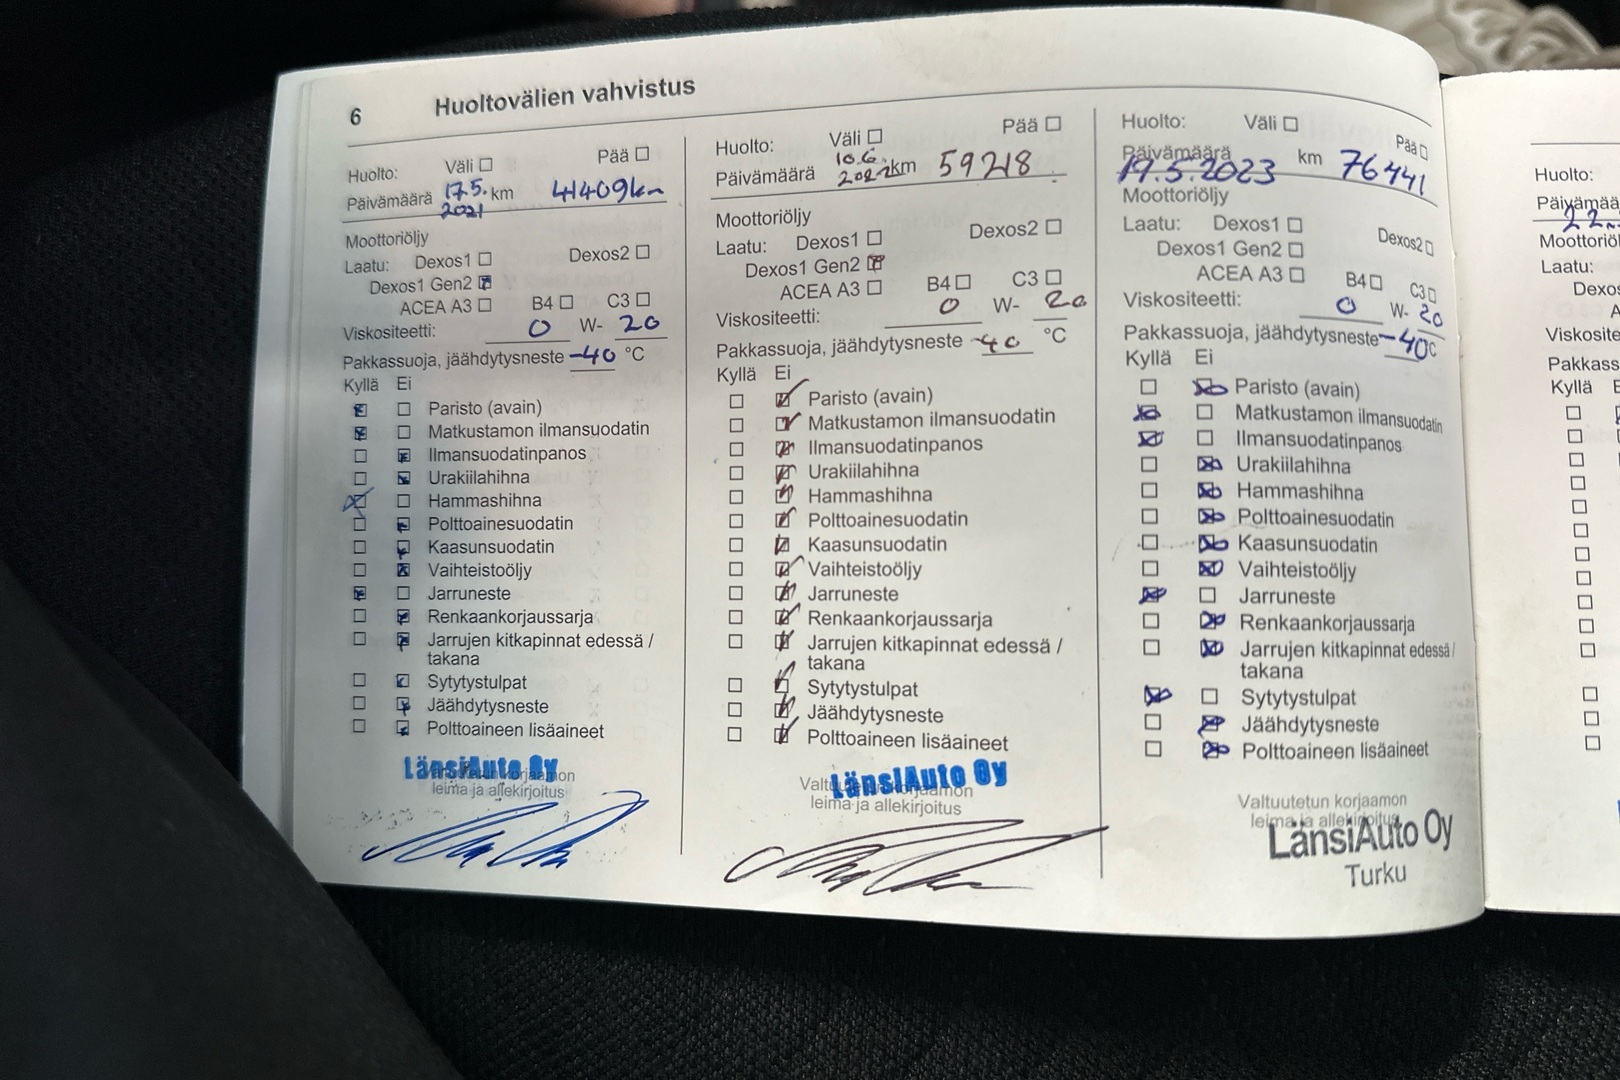 6 Huoltovälien vahvistus
Huolto: Väli Pää
Päivämäärä 17.5. 2021 km 41409km
Moottoriöljy
Laatu: Dexos1 Dexos2
Dexos1 Gen2
ACEA A3 B4 C3
Viskositeetti: 0 W- 20
Pakkassuoja, jäähdytysneste -40 °C
Kyllä Ei
Paristo (avain)
Matkustamon ilmansuodatin
Ilmansuodatinpanos
Urakiilahihna
Hammashihna
Polttoainesuodatin
Kaasunsuodatin
Vaihteistoöljy
Jarruneste
Renkaankorjaussarja
Jarrujen kitkapinnat edessä /
takana
Sytytystulpat
Jäähdytysneste
Polttoaineen lisäaineet
LänsiAuto Oy
leima ja allekirjoitus
Huolto: Väli Pää
Päivämäärä 10.6. 2022 km 59218
Moottoriöljy
Laatu: Dexos1 Dexos2
Dexos1 Gen2
ACEA A3 B4 C3
Viskositeetti: 0 W- 20
Pakkassuoja, jäähdytysneste -40 °C
Kyllä Ei
Paristo (avain)
Matkustamon ilmansuodatin
Ilmansuodatinpanos
Urakiilahihna
Hammashihna
Polttoainesuodatin
Kaasunsuodatin
Vaihteistoöljy
Jarruneste
Renkaankorjaussarja
Jarrujen kitkapinnat edessä /
takana
Sytytystulpat
Jäähdytysneste
Polttoaineen lisäaineet
LänsiAuto Oy
Valtuutetun korjaamon
leima ja allekirjoitus
Huolto: Väli Pää
Päivämäärä km 76441
19.5.2023
Moottoriöljy
Laatu: Dexos1 Dexos2
Dexos1 Gen2
ACEA A3 B4 C3
Viskositeetti: 0 W- 20
Pakkassuoja, jäähdytysneste -40 °C
Kyllä Ei
Paristo (avain)
Matkustamon ilmansuodatin
Ilmansuodatinpanos
Urakiilahihna
Hammashihna
Polttoainesuodatin
Kaasunsuodatin
Vaihteistoöljy
Jarruneste
Renkaankorjaussarja
Jarrujen kitkapinnat edessä /
takana
Sytytystulpat
Jäähdytysneste
Polttoaineen lisäaineet
Valtuutetun korjaamon
leima ja allekirjoitus
LänsiAuto Oy
Turku
Huolto:
Päivämää
22
Moottoriöl
Laatu:
Dexos
A
Viskosite
Pakkass
Kyllä E